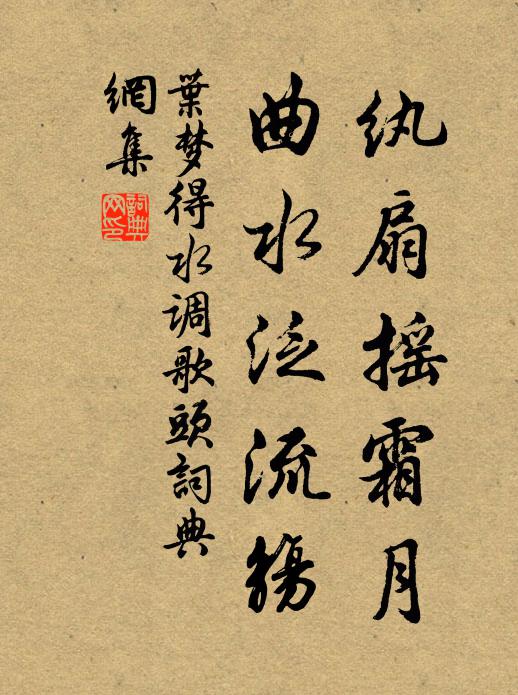 纨扇摇霜月
曲水泛流觞
葉梦得水调歌頭詞典
網集
詞典网印